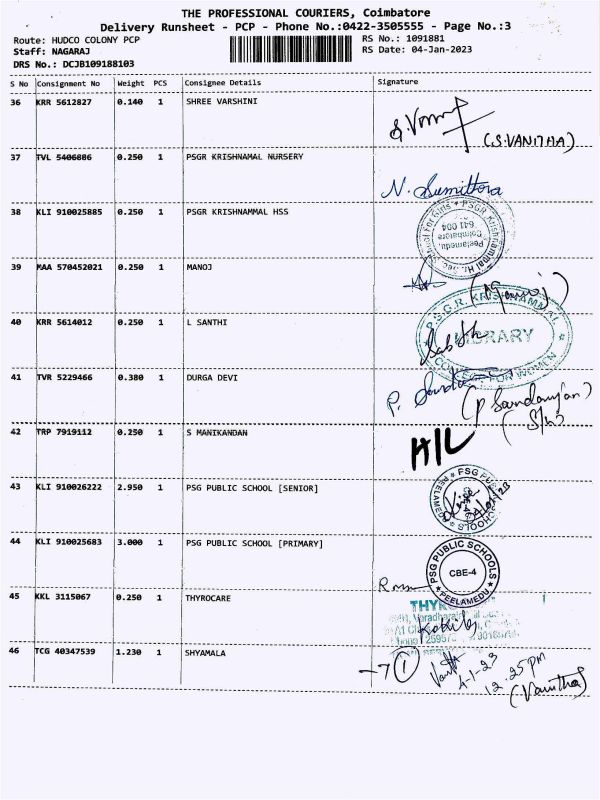 THE PROFESSIONAL COURIERS, Coimbatore
Delivery Runsheet - PCP - Phone No.:0422-3505555 - Page No.:3
Route: HUDCO COLONY PCP
RS No.: 1091881
Staff: NAGARAJ
RS Date: 04-Jan-2023
DRS No.: DCJB109188103
S No Consignment No Weight PCS Consignee Details Signature
36 KRR 5612827 0.140 1 SHREE VARSHINI
(S.VANITHA)
37 TVL 5406886 0.250 1 PSGR KRISHNAMAL NURSERY
N. Sumithra
38 KLI 910025885 0.250 1 PSGR KRISHNAMMAL HSS
PSGR Krishnammal Hr. Sec. School For Girls
Peelamedu,
Coimbatore
641 004
39 MAA 570452021 0.250 1 MANOJ
P.S.G.R. KRISHNAMMAL
LIBRARY
COLLEGE FOR WOMEN
40 KRR 5614012 0.250 1 L SANTHI
41 TVR 5229466 0.380 1 DURGA DEVI
42 TRP 7919112 0.250 1 S MANIKANDAN
H/L
43 KLI 910026222 2.950 1 PSG PUBLIC SCHOOL [SENIOR]
44 KLI 910025683 3.000 1 PSG PUBLIC SCHOOL [PRIMARY]
PSG PUBLIC SCHOOLS
CBE-4
PEELAMEDU
45 KKL 3115067 0.250 1 THYROCARE
46 TCG 40347539 1.230 1 SHYAMALA
4-1-23
12.25 PM
(Vanitha)